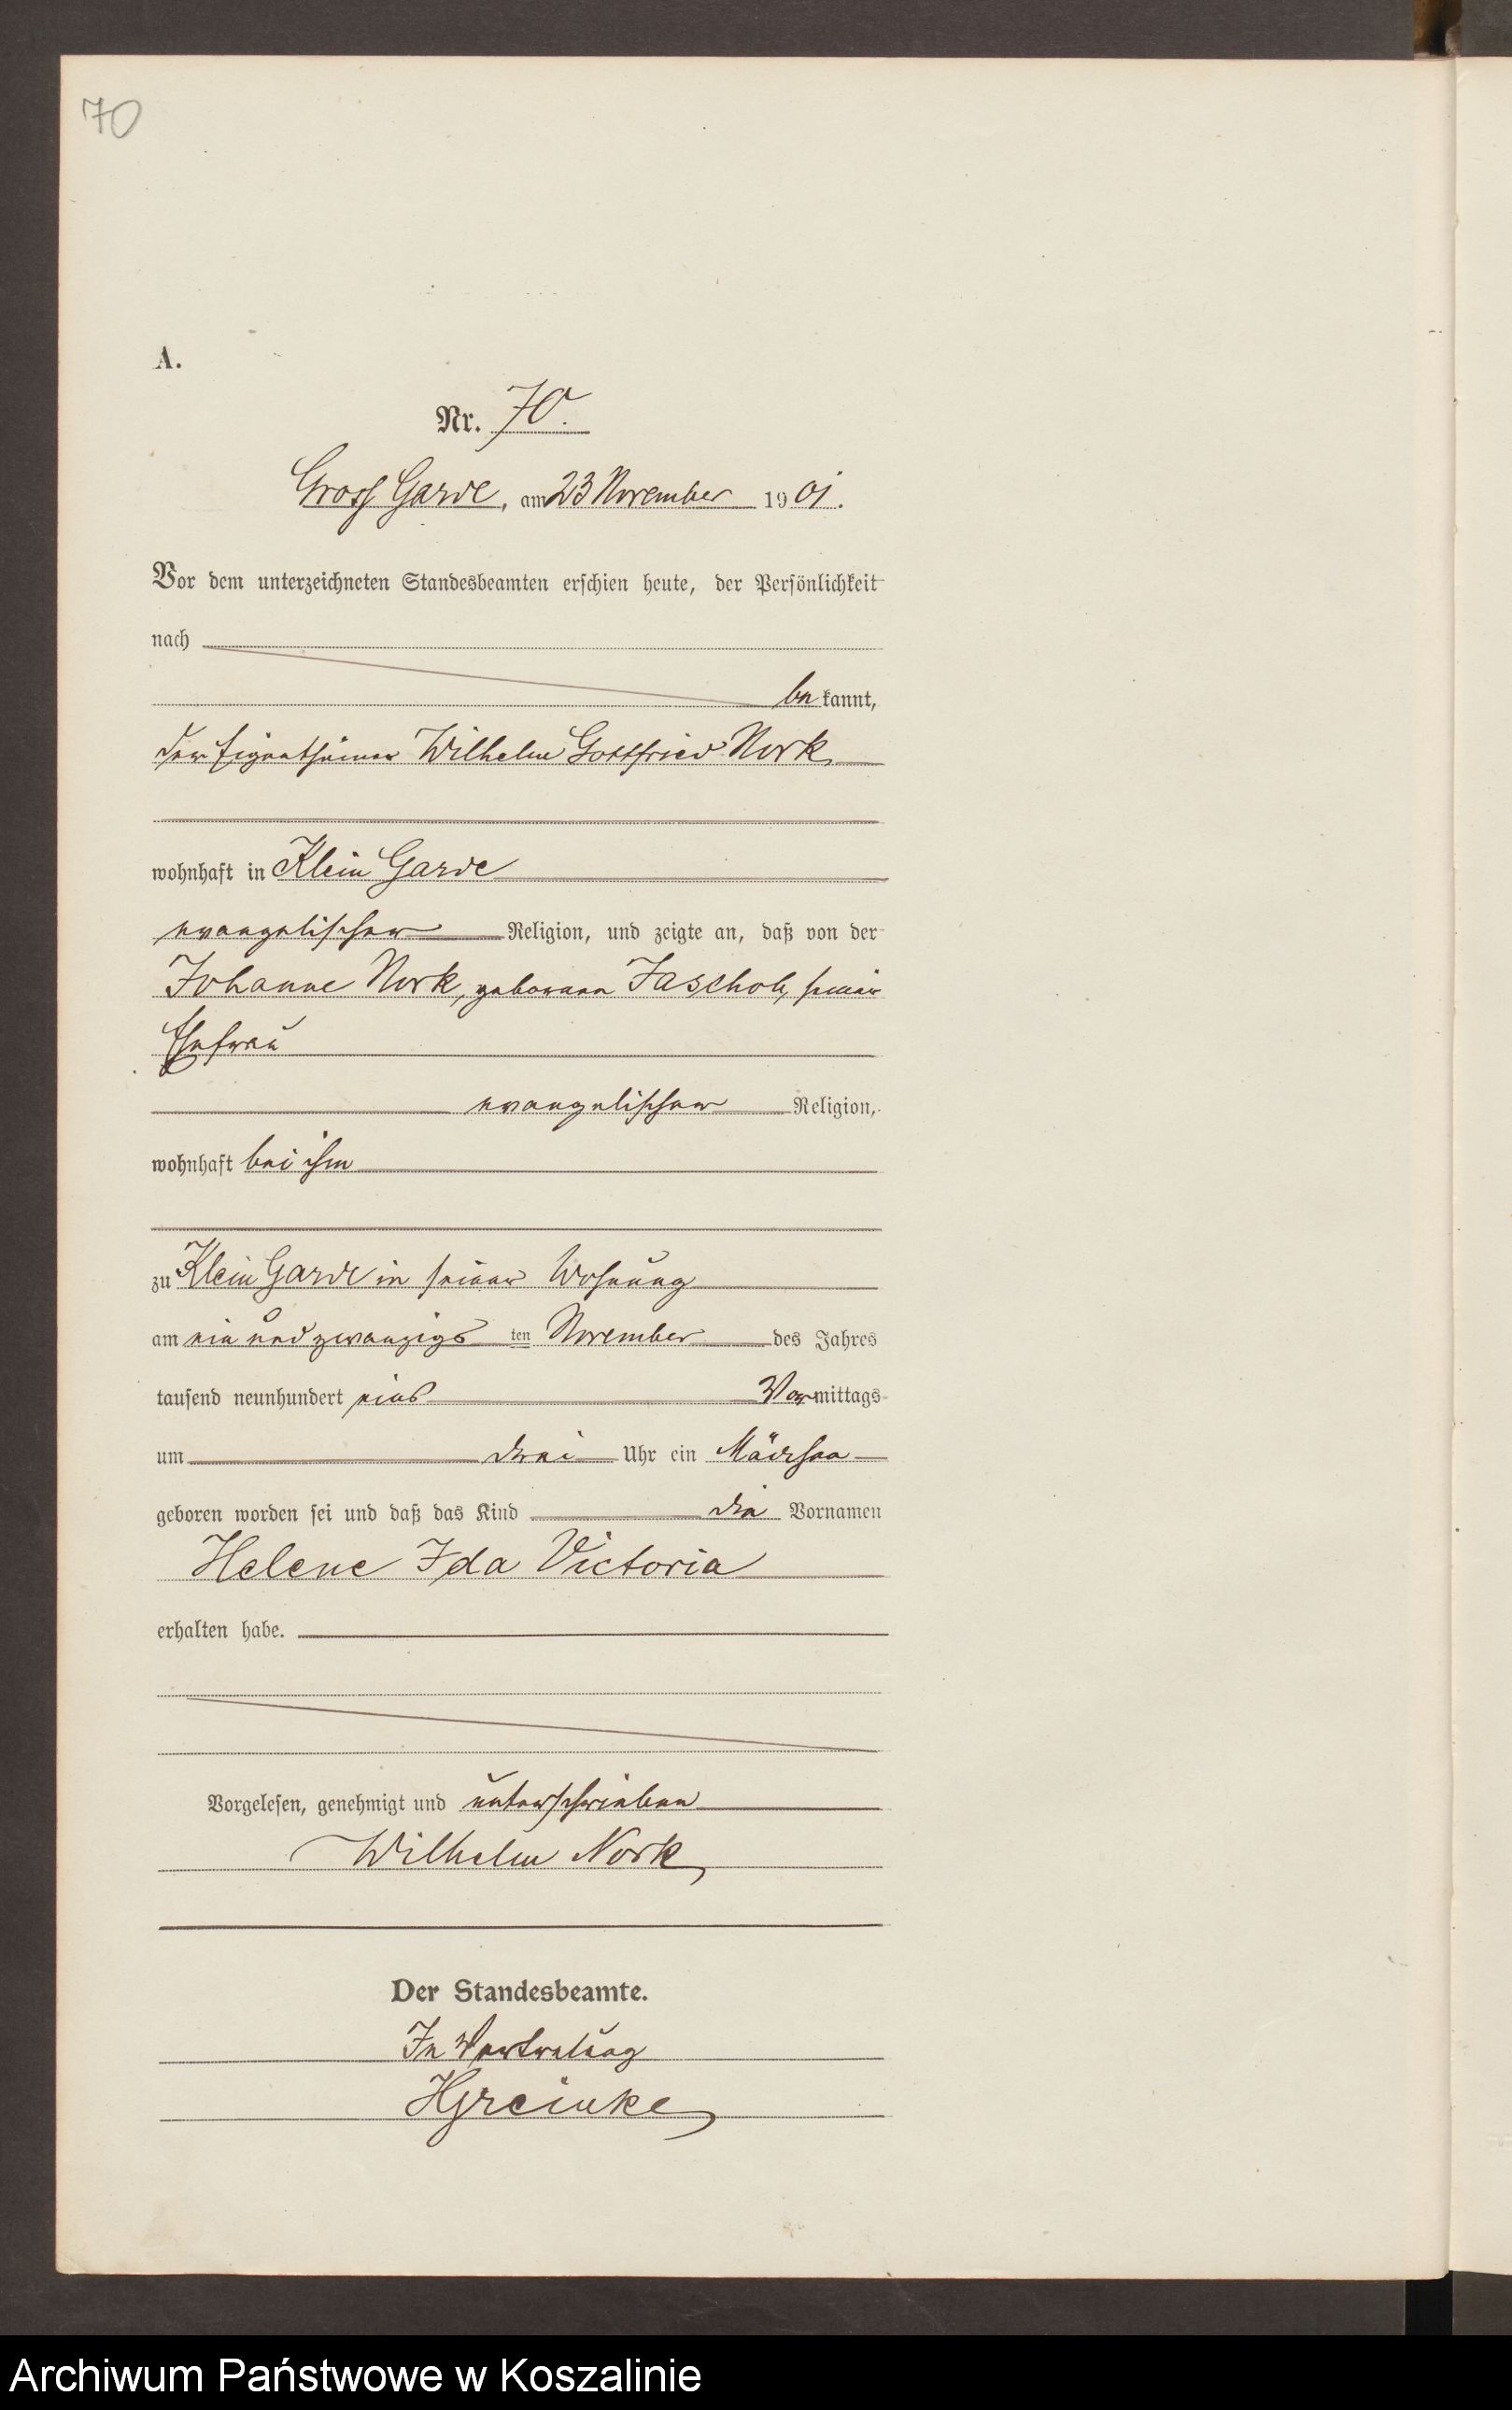 70
A.
Nr. 70.
Gross Garde, am 23 November 1901.
Vor dem unterzeichneten Standesbeamten erschien heute, der Persönlichkeit
nach
be kannt,
der Eigenthümer Wilhelm Gottfried Nork
wohnhaft in Klein Garde
evangelischer Religion, und zeigte an, daß von der
Johanne Nork, geborene Jascholz, seiner
Ehefrau
evangelischer Religion,
wohnhaft bei ihm
zu Klein Garde in seiner Wohnung
am ein und zwanzigs ten November des Jahres
tausend neunhundert eins Vormittags
um drei Uhr ein Mädchen
geboren worden sei und daß das Kind die Vornamen
Helene Ida Victoria
erhalten habe.
Vorgelesen, genehmigt und unterschrieben
Wilhelm Nork
Der Standesbeamte.
In Vertretung
Archiwum Państwowe w Koszalinie